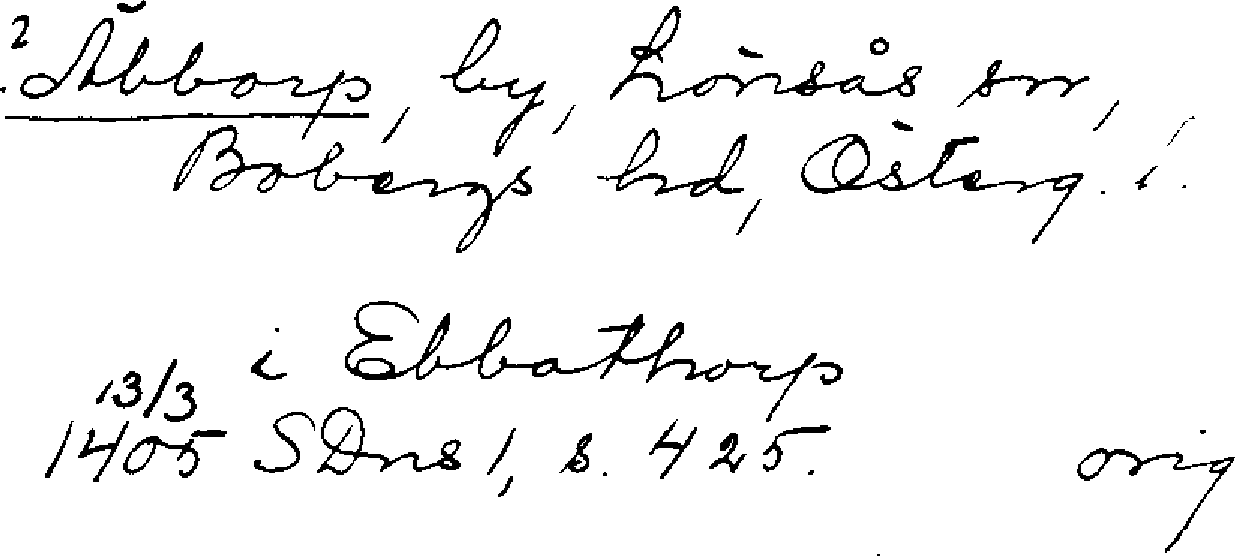 2 Äbborp, by, Lönsås sn,
Bobergs hd, Österg. l.
i Ebbathorp
13/3
1405 SDns 1, s. 425. orig